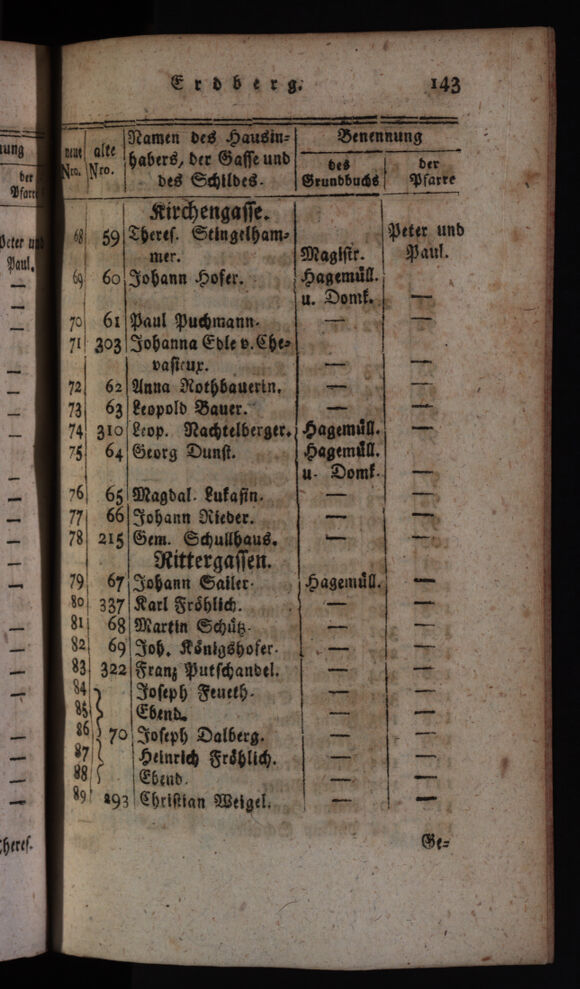 Erdberg. 143
neue Nro. alte Nro. Namen des Hausin= Benennung
habers, der Gasse und des der
des Schildes. Grundbuchs Pfarre
Kirchengasse.
68 59 Theres. Stingelham= Peter und
mer. Magistr. Paul.
69 60 Johann Hofer. Hagemüll.
u. Domk. —
70 61 Paul Puchmann. — —
71 303 Johanna Edle v. Che=
vasieux. — —
72 62 Anna Rothbauerin. — —
73 63 Leopold Bauer. — —
74 310 Leop. Nachtelberger. Hagemüll. —
75 64 Georg Dunst. Hagemüll.
u. Domk. —
76 65 Magdal. Lukasin. — —
77 66 Johann Rieder. — —
78 215 Gem. Schullhaus. — —
Rittergassen.
79 67 Johann Sailer. Hagemüll. —
80 337 Karl Fröhlich. — —
81 68 Martin Schütz. — —
82 69 Joh. Königshofer. — —
83 322 Franz Putschandel. — —
84 Joseph Feueth. — —
85 Ebend. — —
86 70 Joseph Dalberg. — —
87 Heinrich Fröhlich. — —
88 Ebend. — —
89 293 Christian Weigel. — —
Ge=
der
Pfarre
Peter und
Paul.